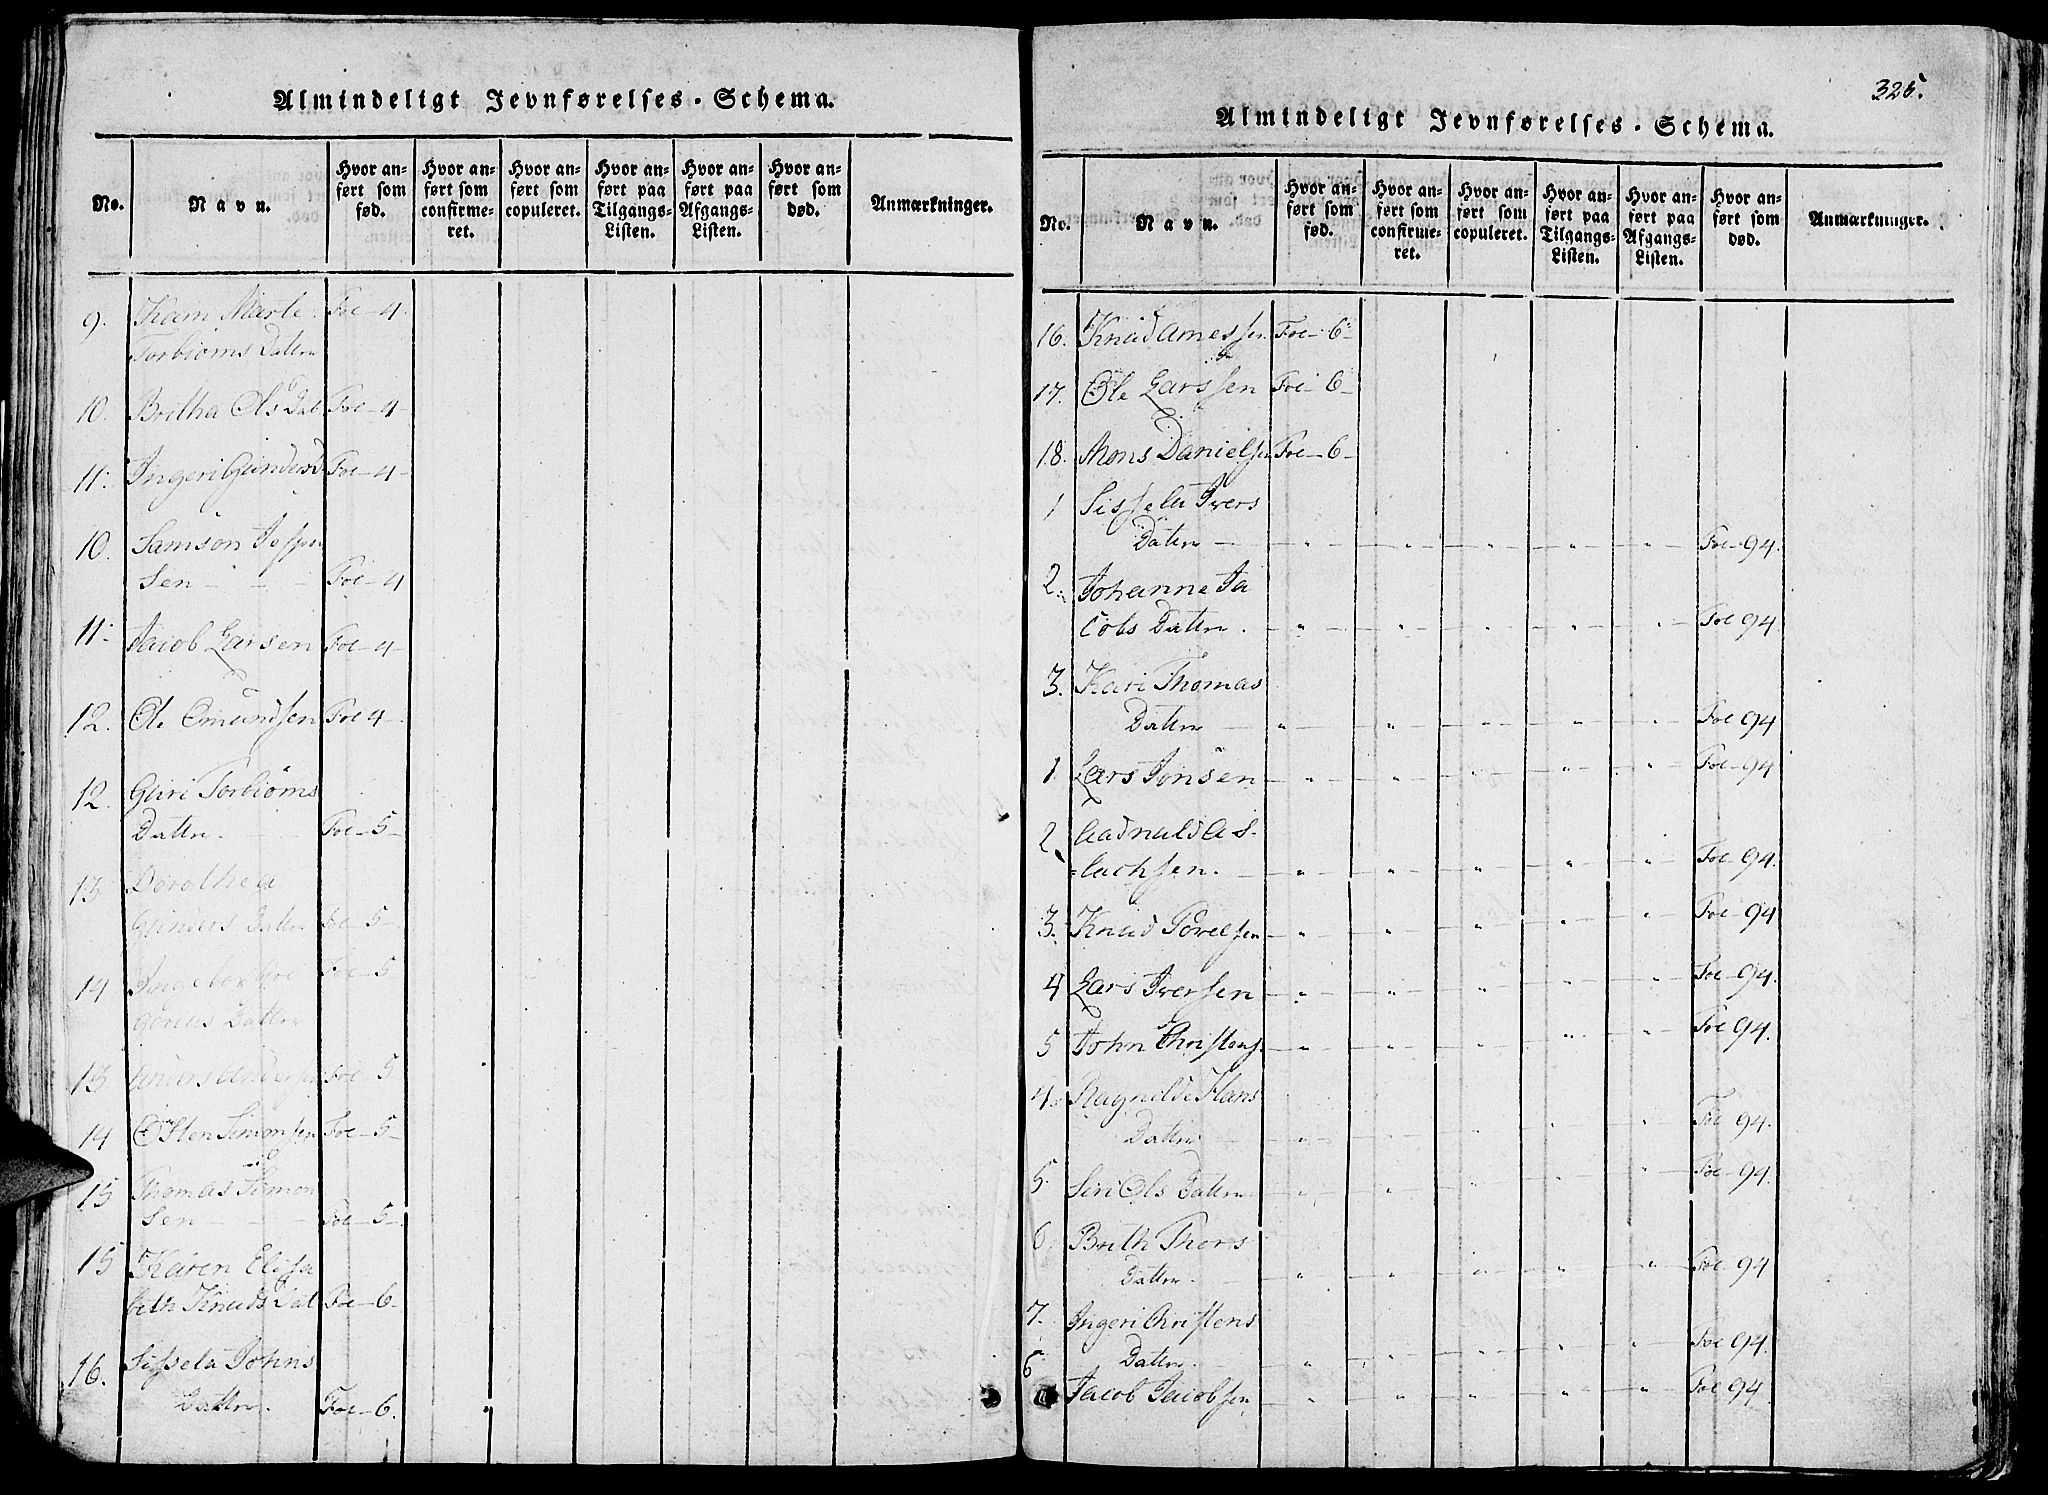 Almindeligt Jevnførelses-Schema.
No.
Navn.
Hvor anført som fød.
Hvor anført som confirmeret.
Hvor anført som copuleret.
Hvor anført paa Tilgangs-Listen.
Hvor anført paa Afgangs-Listen.
Hvor anført som død.
Anmærkninger.
9. Karn Marte Foe-4.
Torbiörns Dattr
10. Britha Ols Dat Foe-4
11. Ingeri Gunders D Foe-4-
10. Samson
Sen - - - Foe-4
11. Jacob Larsen Foe-4-
12. Ole Omundsen Foe 4-
12. Guri Torbiörns
Dattr. Foe-5-
13. Dorothea
Gunders Dattr Foe-5-
14 Foe-5
Dattr
13 Anders Andersen Foe-5
14 Östen Simonsen Foe-5-
15 Thomas Simon
Sen - - - Foe-5-
15 Karen Elisa
beth Knuds Dat Foe-6-
16. Sissela Johns
Dattr. Foe-6.
325.
Almindeligt Jevnførelses-Schema.
No.
Navn.
Hvor anført som fød.
Hvor anført som confirmeret.
Hvor anført som copuleret.
Hvor anført paa Tilgangs-Listen.
Hvor anført paa Afgangs-Listen.
Hvor anført som død.
Anmærkninger.
16. Knud Arnessen Foe-6-
17. Ole Larssen Foe-6-
18. Mons Danielsen Foe-6-
1 Sissela Ivers
Dattr - " - " - " - " - " - Foe-94.
2. Johanne Ja
cobs Dattr. - " - " - " - " - " - Foe 94
3. Kari Thomas
Dattr - " - " - " - " - " - Foe 94
1. Lars Jonsen - " - " - " - " - " - Foe-94
2. Aadnald As-
=lachsen. - " - " - " - " - " - Foe 94.
3. Knud Povelsen - " - " - " - " - " - Foe 94
4 Lars Iversen - " - " - " - " - " - Foe-94.
5 John Christens. - " - " - " - " - " - Foe 94.
4. Ragnilde Hans
Dattr - " - " - " - " - " - Foe 94.
5. Siri Ols Dattr - " - " - " - " - " - Foe-94.
6. Brith Thors
Dattr. - " - " - " - " - " - Foe 94
7. Ingeri Christens
Dattr. - " - " - " - " - " - Foe 94.
6 Jacob Jacobsen - " - " - " - " - " - Foe 94.